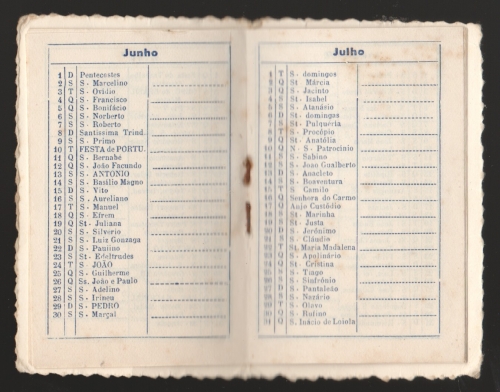 Junho
1 D Pentecostes
2 S S - Marcelino
3 T S - Ovidio
4 Q S - Francisco
5 Q S - Bonifácio
6 S S - Norberto
7 S S - Roberto
8 D Santissima Trind.
9 S S - Primo
10 T FESTA de PORTU.
11 Q S - Bernabé
12 Q S - João Facundo
13 S S - ANTONIO
14 S S - Basilio Magno
15 D S - Vito
16 S S - Aureliano
17 T S - Manuel
18 Q S - Efrem
19 Q St - Juliana
20 S S - Silverio
21 S S - Luiz Gonzaga
22 D S - Paulino
23 S St - Edeltrudes
24 T S - JOÃO
25 Q S - Guilherme
26 Q Ss. João e Paulo
27 S S - Adelino
28 S S - Irineu
29 D S - PEDRO
30 S S - Marçal
Julho
1 T S - domingos
2 Q St - Márcia
3 Q S - Jacinto
4 S St - Isabel
5 S S - Atanásio
6 D St - domingos
7 S St - Pulqueria
8 T S - Procópio
9 Q St - Anatólia
10 Q N S - Patrocinio
11 S S - Sabino
12 S S - Joao Gualberto
13 D S - Anacleto
14 S S - Boaventura
15 T S - Camilo
16 Q Senhora do Carmo
17 Q Anjo Custódio
18 S St - Marinha
19 S St - Justa
20 D S - Jerónimo
21 S S - Cláudio
22 T St. Maria Madalena
23 Q S - Apolinário
24 Q St - Cristina
25 S S - Tiago
26 S S - Sinfrónio
27 D S - Pantaleão
28 S S - Nazário
29 T S - Olavo
30 Q S - Rufino
31 Q S. Inácio de Loiola